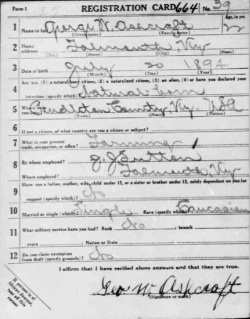 Form 1 REGISTRATION CARD 664 No. 39
1 Name in full George W. Ashcraft Age, in yrs
(Given name) (Family name)
2 Home address Falmouth Ky
3 Date of birth July 20 1894
(Month) (Day) (Year)
4 Are you (1) a natural-born citizen, (2) a naturalized citizen, (3) an alien, (4) or have you declared your
intention (specify which)? Natural born
5 Pendleton County, Ky USA
6 If not a citizen, of what country are you a citizen or subject?
7 What is your present trade, occupation, or office? Farming
8 By whom employed?
Where employed? Falmouth Ky
9 Have you a father, mother, wife, child under 12, or a sister or brother under 12, solely dependent on you for
support (specify which)? No
10 Married or single (which)? Single Race (specify which)? Caucasian
11 What military service have you had? Rank No branch
years Nation or State
12 Do you claim exemption from draft (specify grounds)? No
I affirm that I have verified above answers and that they are true.
Geo W Ashcraft
(Signature or mark)